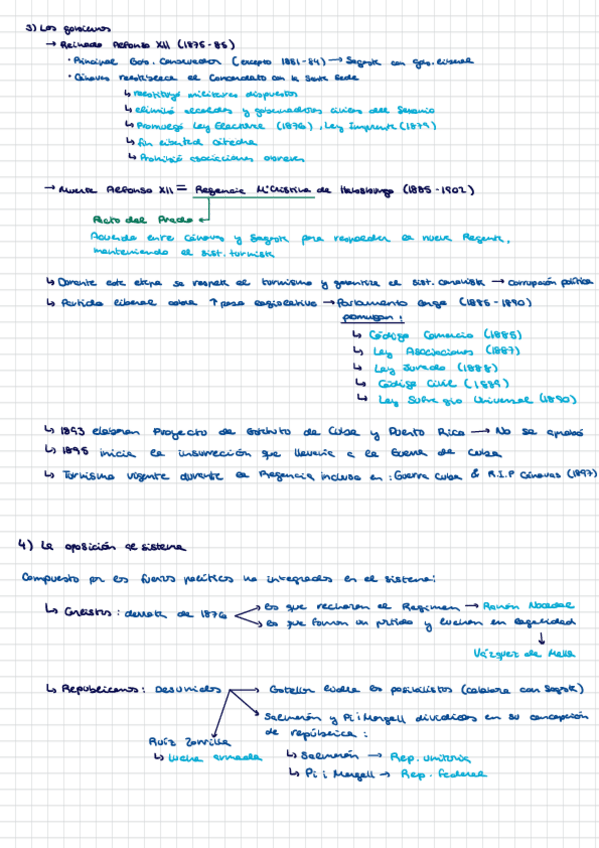 3) Los gobiernos
→ Reinado Alfonso XII (1875-85)
· Principal Gob. Conservador (excepto 1881-84) → Sagasta con gob. liberal
· Cánovas restablece el Concordato con la Santa Sede
↳ restituyó militares dispuestos
↳ eliminó alcaldes y gobernadores civiles del Sexenio
↳ Promulgó Ley Electoral (1878), Ley Imprenta (1879)
↳ fin libertad cátedra
↳ Prohibió asociaciones obreras
→ Muerte Alfonso XII = Regencia Mª Cristina de Habsburgo (1885-1902)
Pacto del Prado ↵
Acuerdo entre Cánovas y Sagasta para respaldar la nueva Regente,
manteniendo el sist. turnista
↳ Durante esta etapa se respeta el turnismo y garantiza el sist. canovista → corrupción política
↳ Partido liberal cobra ↑ peso legislativo → Parlamento largo (1885-1890)
promulgan:
↳ Código Comercio (1885)
↳ Ley Asociaciones (1887)
↳ Ley Jurado (1888)
↳ Código Civil (1889)
↳ Ley Sufragio Universal (1890)
↳ 1893 elaboran Proyecto de Estatuto de Cuba y Puerto Rico → No se aprobó
↳ 1895 inicia la insurrección que llevaría a la Guerra de Cuba
↳ Turnismo vigente durante la Regencia incluso en: Guerra Cuba & R.I.P Cánovas (1897)
4) La oposición al sistema
Compuesto por las fuerzas políticas no integradas en el sistema:
↳ Carlistas: derrota de 1876
los que rechazan el Régimen → Ramón Nocedal
los que forman un partido y luchan en legalidad
↓
Vázquez de Mella
↳ Republicanos: Desunidos
Castellar lidera los posibilistas (colabora con Sagasta)
Salmerón y Pi i Margall divididos en su concepción
de república:
Ruiz Zorrilla
↳ lucha armada
↳ Salmerón → Rep. unitaria
↳ Pi i Margall → Rep. federal